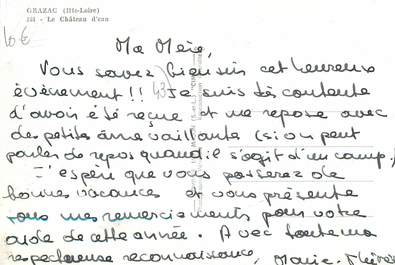 GRAZAC (Hte-Loire)
- Le Château d'eau
10 €
Ma Mère,
Vous savez bien sûr cet heureux
évènement !! Je suis très contente
43
d'avoir été reçue et me repose avec
des petites âme vaillante (si on peut
parler de repos quand il s'agit d'un camp)
J'espère que vous passerez de
bonnes vacances et vous présente
tous mes remerciements pour votre
aide de cette année. Avec toute ma
respectueuse reconnaissance, Marie-